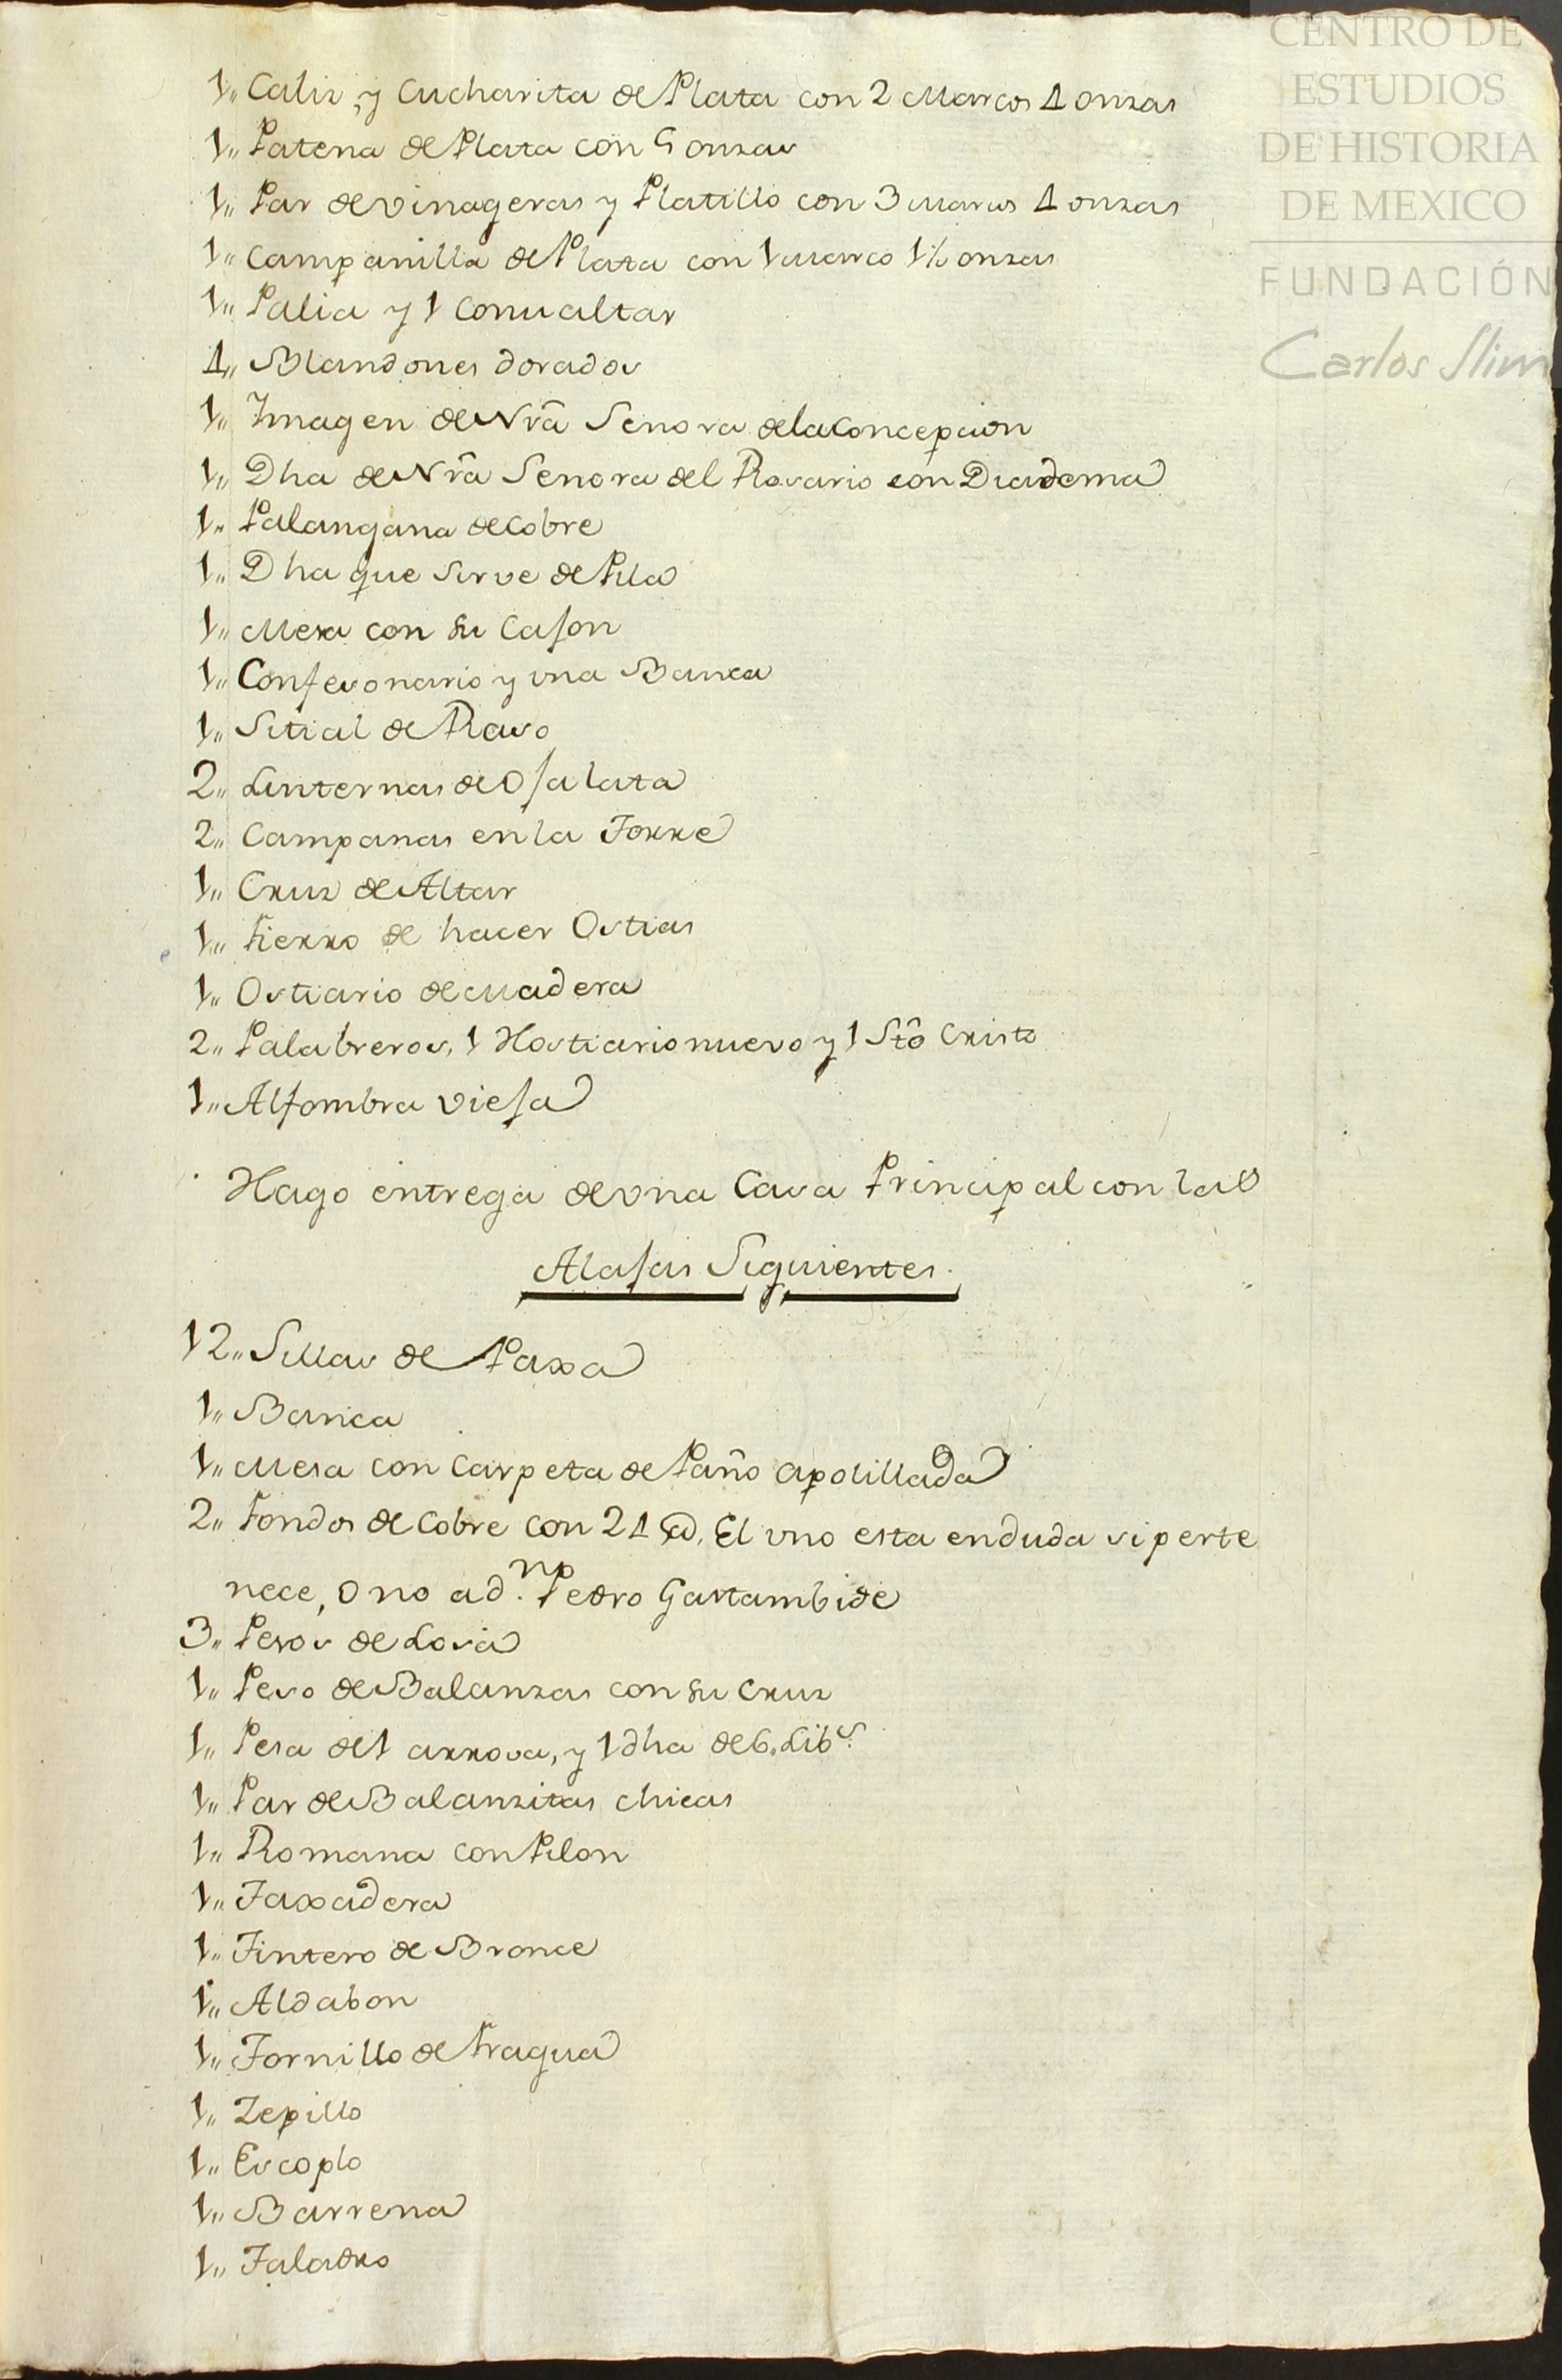 CENTRO DE
ESTUDIOS
DE HISTORIA
DE MEXICO
FUNDACIÓN
Carlos Slim
1,, Caliz, y Cucharita de Plata con 2 Marcos 4 onzas
1,, Patena de Plata con 5 onzas
1,, Par de vinageras y Platillo con 3 Marcos 4 onzas
1,, Campanilla de Plata con 1 Marco 1½ onzas
1,, Palia y 1 Cornualtar
4,, Blandones dorados
1,, Imagen de Nrã Senora dela Concepcion
1,, Dha de Nrã Senora del Rosario con Diadema
1,, Palangana de Cobre
1,, Dha que sirve de Pila
1,, Mesa con su Cajon
1,, Confesonario y una Banca
1,, Sitial de Raso
2,, Linternas de Ojalata
2,, Campanas en la Torre
1,, Cruz de Altar
1,, Fierro de hacer Ostias
1,, Ostiario de Madera
2,, Palabreros, 1 Hostiario nuevo y 1 Stõ Cristo
1,, Alfombra vieja
Hago entrega de una Casa Principal con las
Alajas Siguientes.
12,, Sillas de Paxa
1,, Banca
1,, Mesa con Carpeta de Paño apolillada
2,, Fondos de Cobre con 24 @. El uno esta en duda si perte
nece, o no a d.n Pedro Gastambide
3,, Pesos de Losa
1,, Peso de Balanzas con su Cruz
1,, Pesa de 1 arrova, y 1 dha de 6,, Lib.s
1,, Par de Balanzitas chicas
1,, Romana con Pilon
1,, Taxadera
1,, Tintero de Bronce
1,, Aldabon
1,, Tornillo de Fragua
1,, Zepillo
1,, Escoplo
1,, Barrena
1,, Taladro